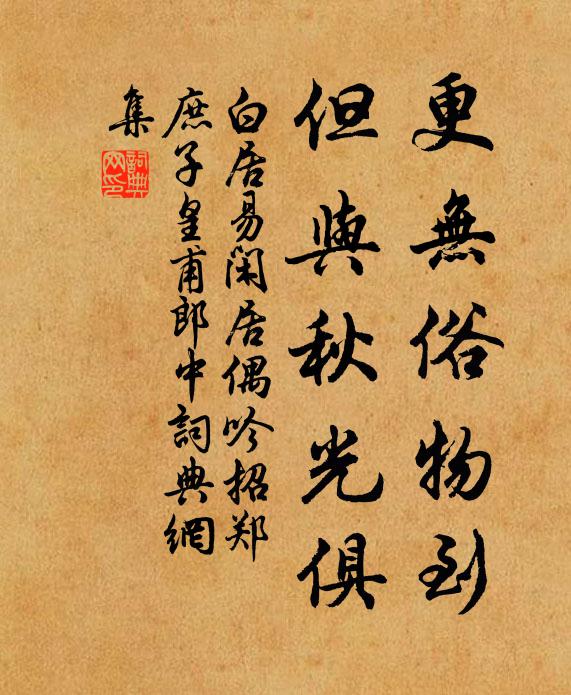 更無俗物到
但與秋光俱
白居易閑居偶吟招郑
庶子皇甫郎中詞典網
集
詞典網印